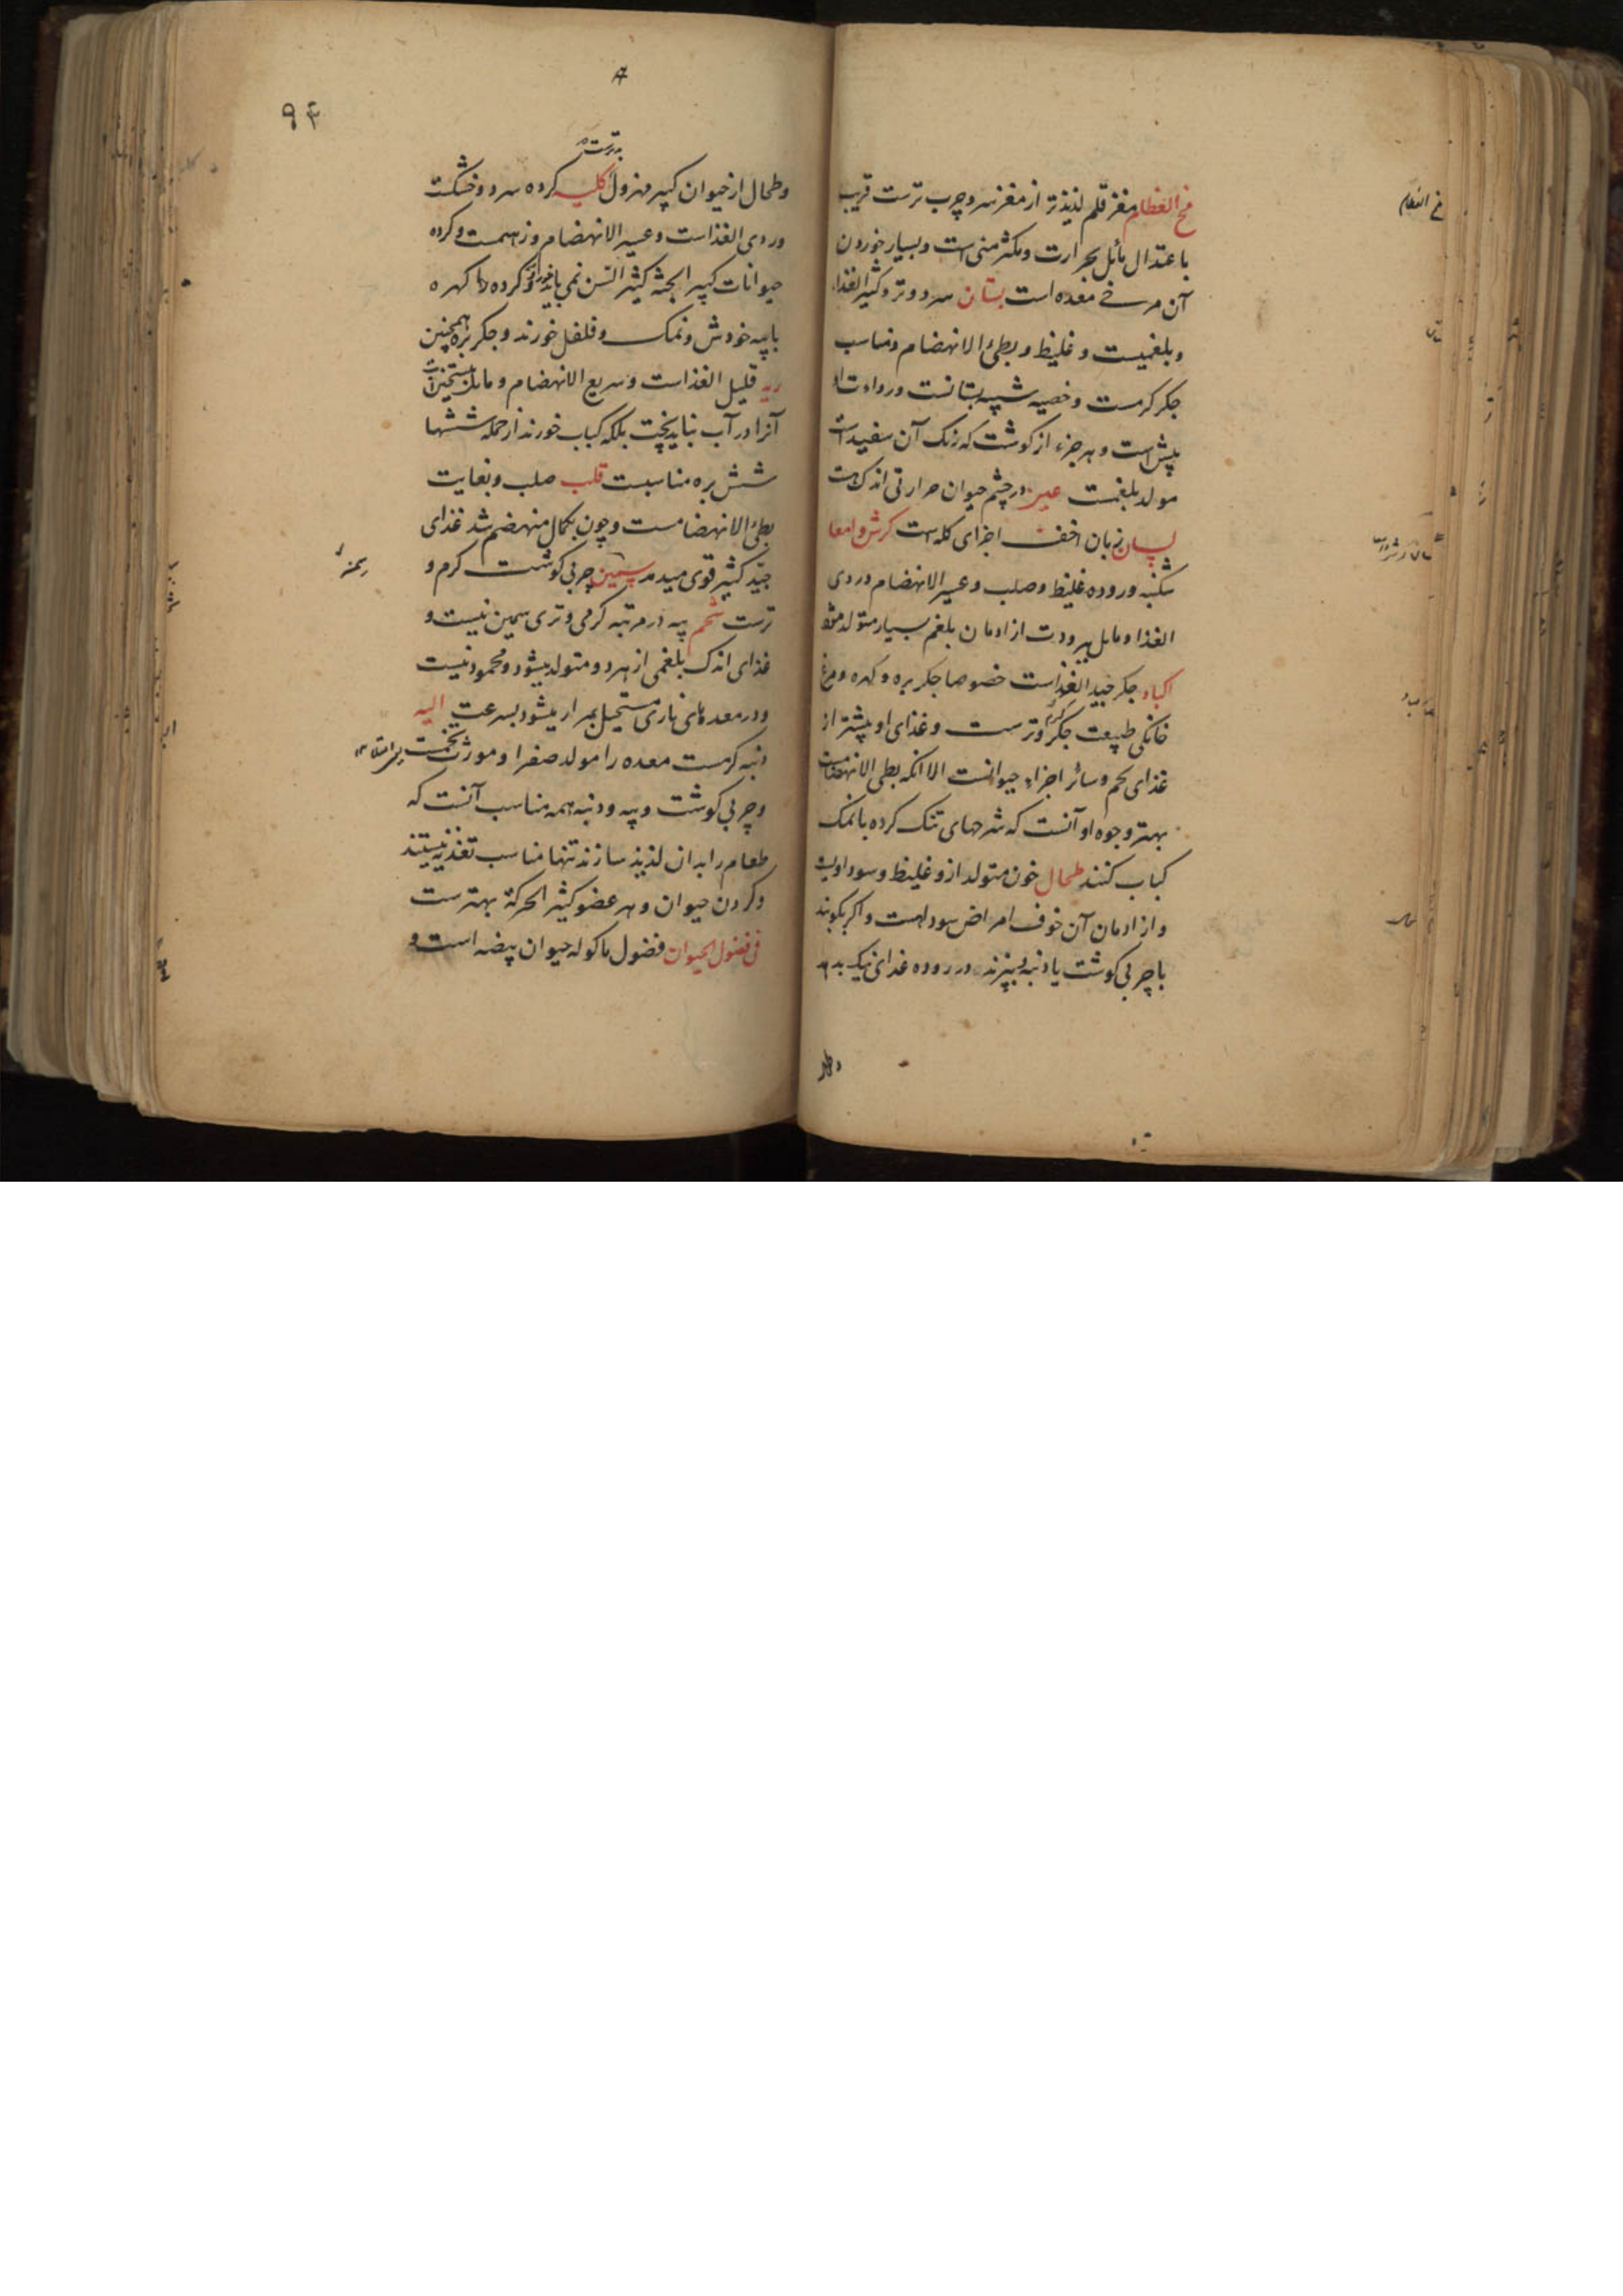 مخ العظام مغز قلم لذیذتر از مغز سر و چرب ترست قریب
باعتدال مائل بحرارت ومکثر منی است وبسیار خوردن
آن مرخی معده است پستان سرد وتر وکثیر الغذاء
وبلغمیست و غلیظ و بطئ الانهضام ومناسب
جکر کرمست وخصیه شبیه بپستانست ورداءت او
بیش است و هر جزء از کوشت که رنک آن سفید است
مولد بلغمست عین در چشم حیوان حرارتی اندک هست
لسان زبان اخف اجزای کله است کرش وامعا
شکنبه وروده غلیظ وصلب وعسیر الانهضام وردی
الغذا ومایل ببرودت از ادمان بلغم بسیار متولد
اکباد جکر جید الغذاست خصوصا جکر بره وکهره ومرغ
خانکی طبیعت جکر کرم وترست وغذای او بیشتر از
غذای لحم وسائر اجزاء حیوانست الا انکه بطی الانهضامست
بهتر وجوه او آنست که شرحهای تنک کرده بانمک
کباب کنند طحال خون متولد ازو غلیظ وسوداویست
و از ادمان آن خوف امراض سوداست واکر بکوبند
باچربی کوشت یا دنبه وبپزند در روده غذای نیک بدهد
وطحال
مخ العظام
۹۴
وطحال از حیوان کبیر مهزول کلیه کرده سرد وخشکت
بدترست
وردی الغذاست وعسیر الانهضام وزهمست وکرده
حیوانات کبیر الجثه کثیر السن نمی باید خورد وکرده کهره
باپیه خودش ونمک وفلفل خورند وجکر بره همچنین
ریه قلیل الغذاست وسریع الانهضام ومایل
آنرا در آب نباید پخت بلکه کباب خورند از جمله ششها
شش بره مناسبست قلب صلب وبغایت
بطئ الانهضامست وچون بکمال منهضم شد غذای
جید کثیر قوی میدهد سمین چربی کوشت کرم و
ترست شحم پیه در مرتبه کرمی وتری سمین نیست و
غذای اندک بلغمی از هر دو متولد میشود ومحمود نیست
ودر معدهای ناری مستحیل بمرار میشود بسرعت الیه
دنبه کرمست معده را مولد صفرا ومورث تخمت
وچربی کوشت وپیه ودنبه همه مناسب آنست که
طعام را بدان لذیذ سازند تنها مناسب تغذیه نیستند
وکردن حیوان وهر عضو کثیر الحرکة بهترست
فی فضول الحیوان فضول ماکوله حیوان بیضه است و